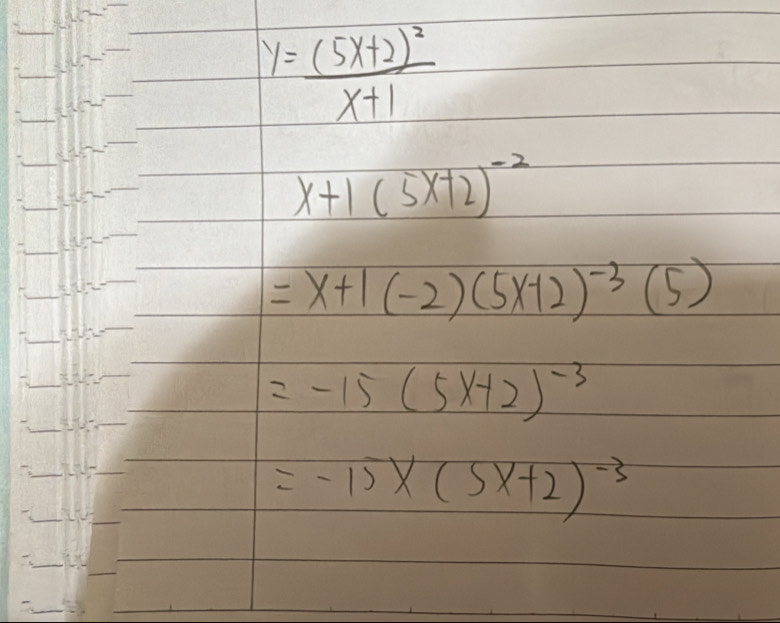 y = (5x+2)²
x+1
x+1 (5x+2)⁻²
= x+1 (-2)(5x+2)⁻³ (5)
= -15 (5x+2)⁻³
= -15x (5x+2)⁻³